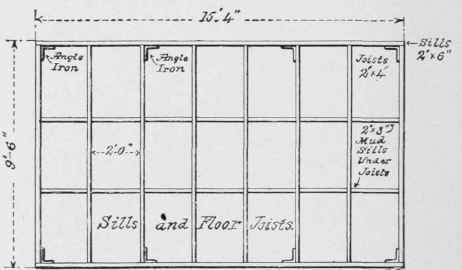 15'4"
Sills
2"x6"
Angle
Iron
Angle
Iron
Joists
2"x4"
9'-6"
2'-0"
2"x3"
Mud
Sills
Under
Joists
Sills and Floor Joists.